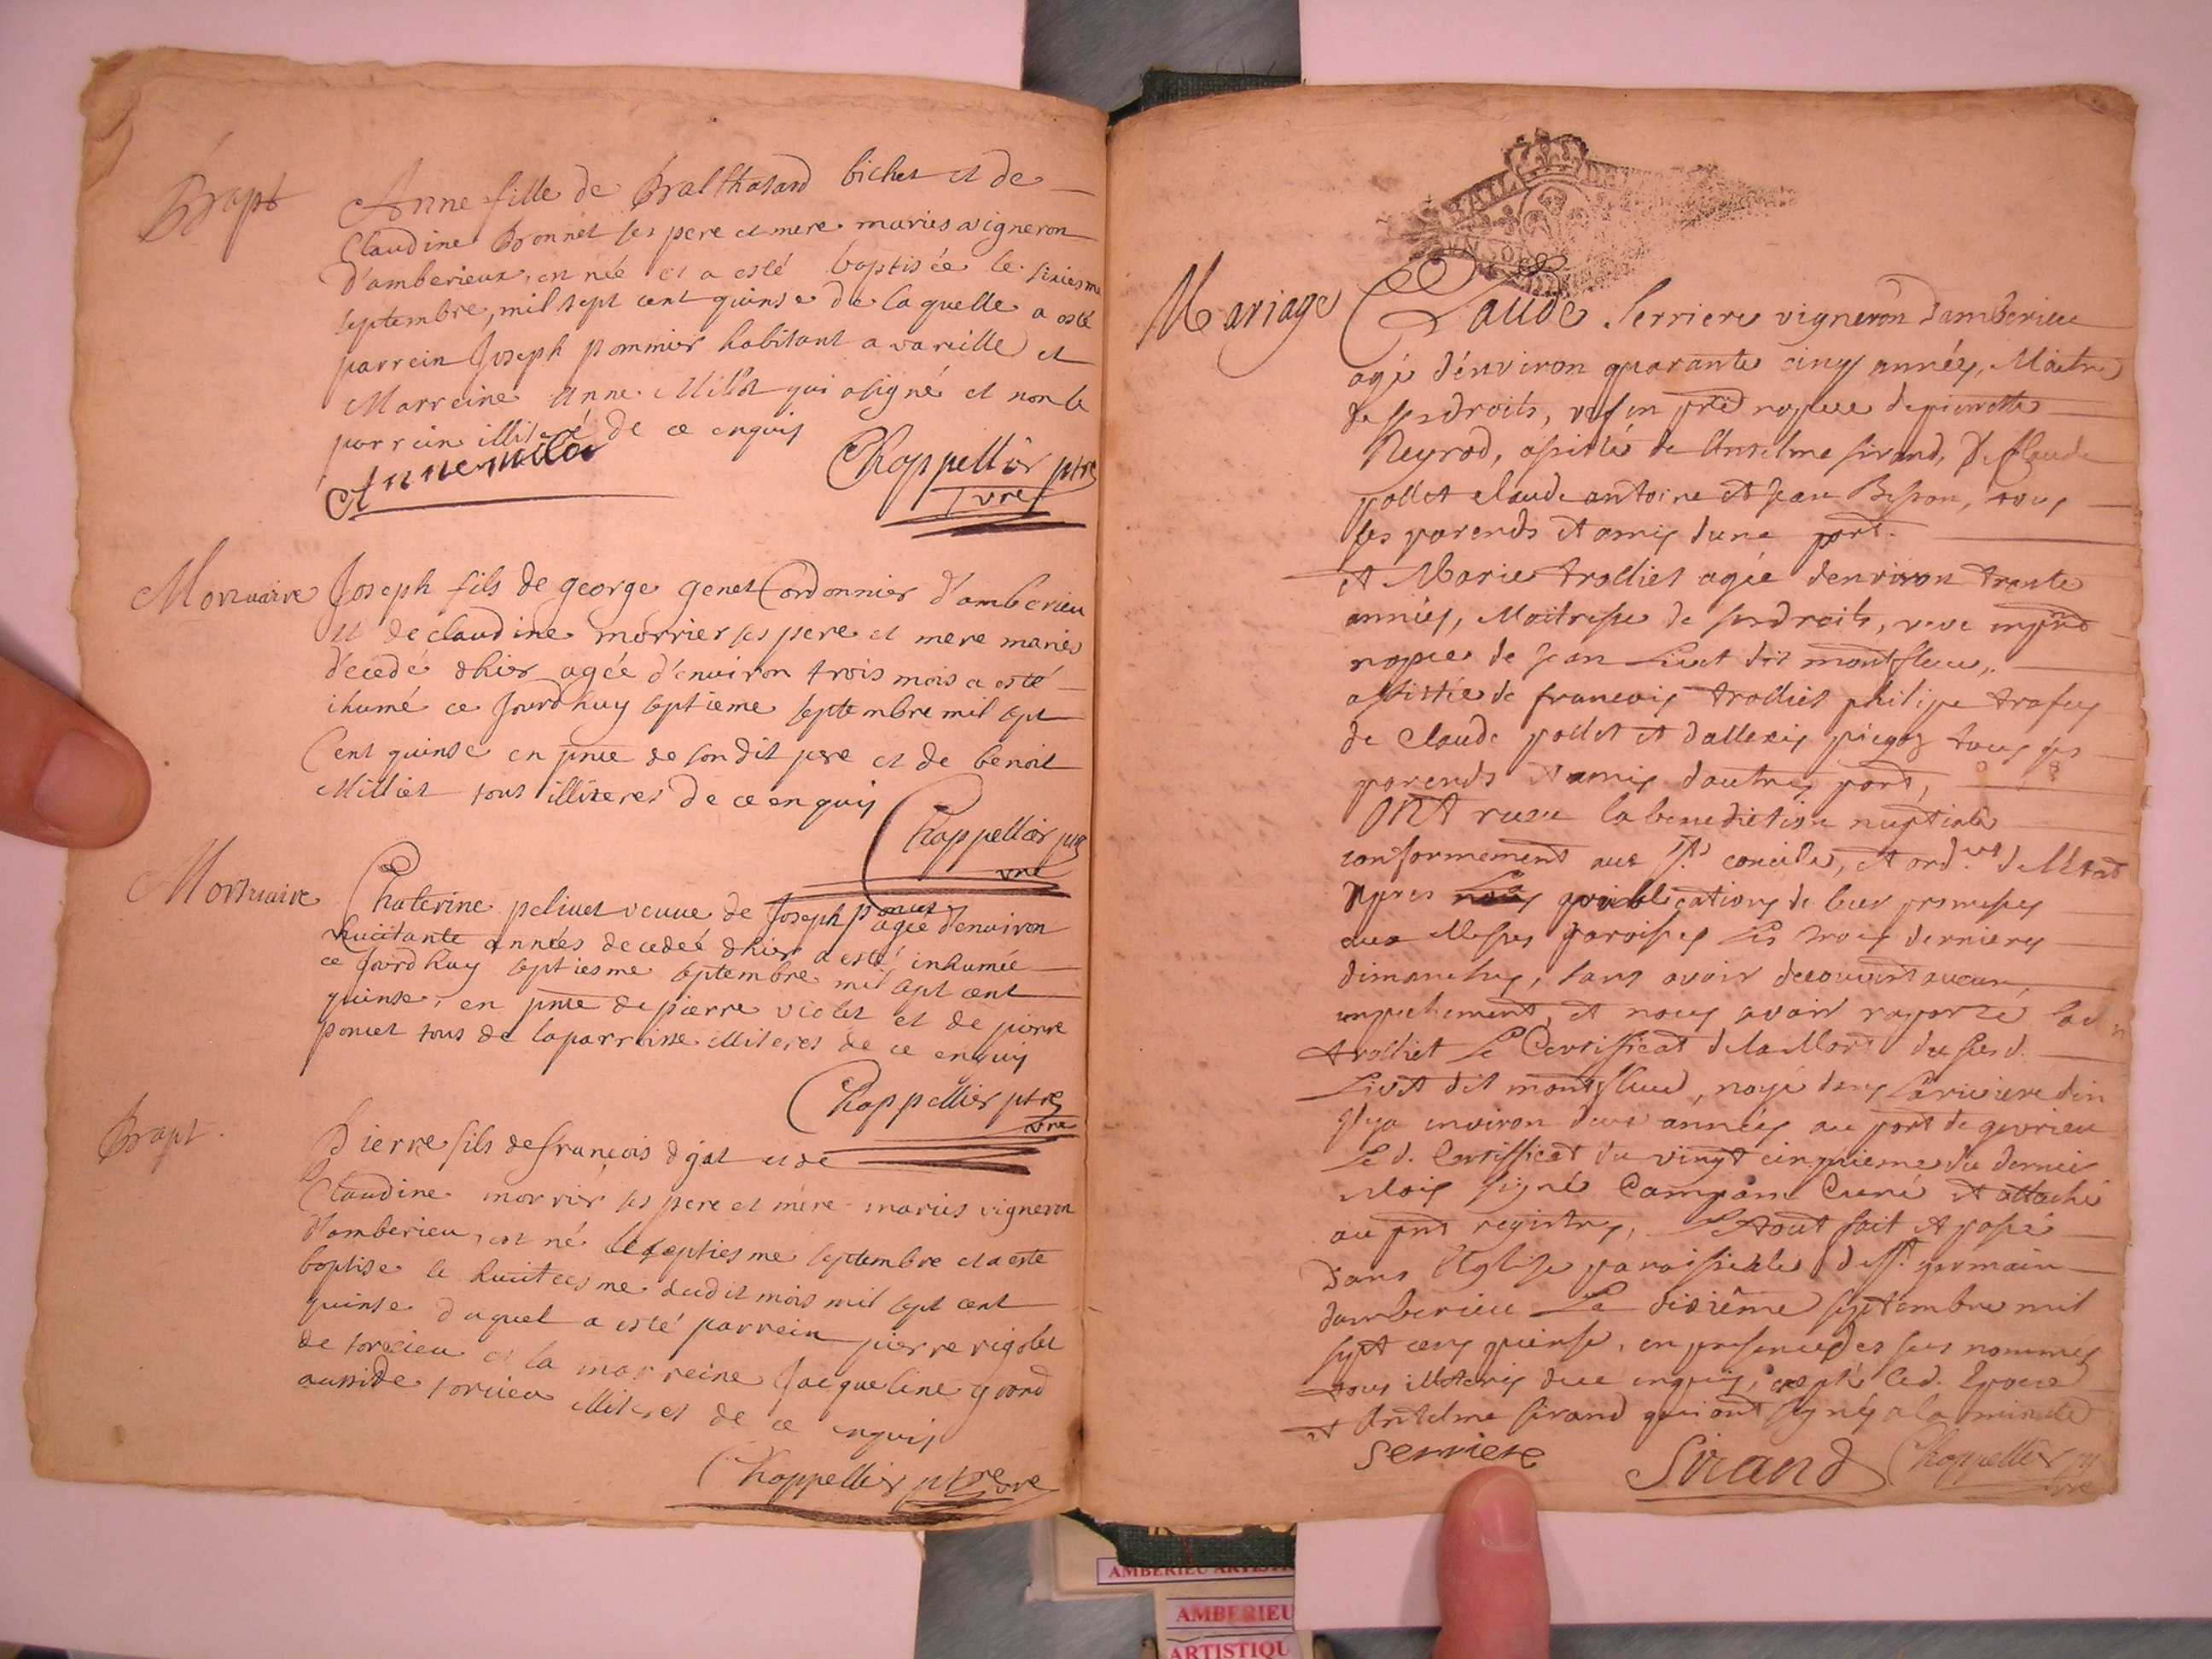 Bapt
Anne fille de Bralthasard bichet et de
Claudine Bonnet ses pere et mere maries vigneron
d'amberieux, en née et a esté baptisée le sixiesme
septembre, mil sept cent quinse de laquelle a osté
parrein Joseph pommier habitant a vareille et
Marreine Anne Millot qui a signé et non le
parrein illiteré de ce enquis
Anne milot
Chappellier ptre
vre
Mortuaire
Joseph fils de george genet Cordonnier d'amberieu
et de claudine morrier ses pere et mere maries
decedé dhier agée d'environ trois mois a esté
ihumé ce Jourdhuy septieme septembre mil sept
Cent quinse en pnce de son dit pere et de benoit
Milliet tous illiteres de ce enquis
Chappellier ptre
vre
Mortuaire
Chaterine pelivet veuve de Joseph poncet
agée denviron
huictante années decedeé dhier a esté inhumée
ce Jourdhuy septiesme septembre mil sept cent
quinse, en pnce de pierre violet et de pierre
poncet tous de laparroisse illiteres de ce enquis
Chappellier ptre
vre
Bapt.
Pierre fils de françois djat et de
Claudine morrier ses pere et mere maries vigneron
d'amberieu, est né le septiesme septembre et a esté
baptise le huictiesme dudit mois mil sept cent
quinse duquel a esté parrein pierre rigolet
de torcieu et la marreine Jacqueline gvord
aussi de torcieu illiteret de ce enquis
Chappellier ptre
vre
Mariage
Claude Serriere vigneron d'amberieu
agé d'environ quarante cinq années, Maitre
de ses droits, vef en nopces de pierrette
Neyrod, assisté de Anselme sirand, De Claude
pollet claude antoine et Jean Besson, tous
ses parends et amis d'une part.
et Marie trolliet agée denviron trante
années, Maitresse de ses droits, veve en
nopces de Jean Livet dit montfleur,
assistée de francois trolliet philipe trafey
de Claude pollet et dallexis tous ses
parends et amis dautres part,
ONT receu la benediction nuptiale
conformement aux Sts conciles, et ordces de
Apres Les publications de leur promesses
aux Messes paroisses les trois dernieres
dimanches, sans avoir decouvert aucun
enpechement, et nous avoir raporté lad
trolliet Le Certifficat de la Mort du feu d.
Livet dit montfleur, noyé dans la riviere din
Il y a environ deux années au port de gevrieu
Le d. Certifficat du vingt cinquieme du dernier
Mois signé Curé et attaché
au pnt registre, Le tout fait et passé
dans l'Eglise paroissiale de St. germain
damberieu Le dixiême septembre mil
sept cens quinse, en presence des sus nommes
tous illiteris de ce enquis, excepté led. Epoux
et Anselme sirand qui ont signés a la minute
Serriere
Sirand
Chappellier
vre
AMBERIEU ARTISTI
AMBERIEU
ARTISTIQU